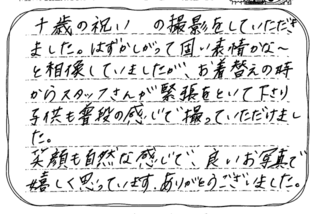 十歳の祝い の撮影をしていただき
ました。はずかしがって固い表情かな〜
と想像していましたが、お着替えの時
からスタッフさんが緊張をといて下さり
子供も普段の感じで撮っていただけまし
た。
笑顔も自然な感じで、良いお写真で
嬉しく思っています。ありがとうございました。